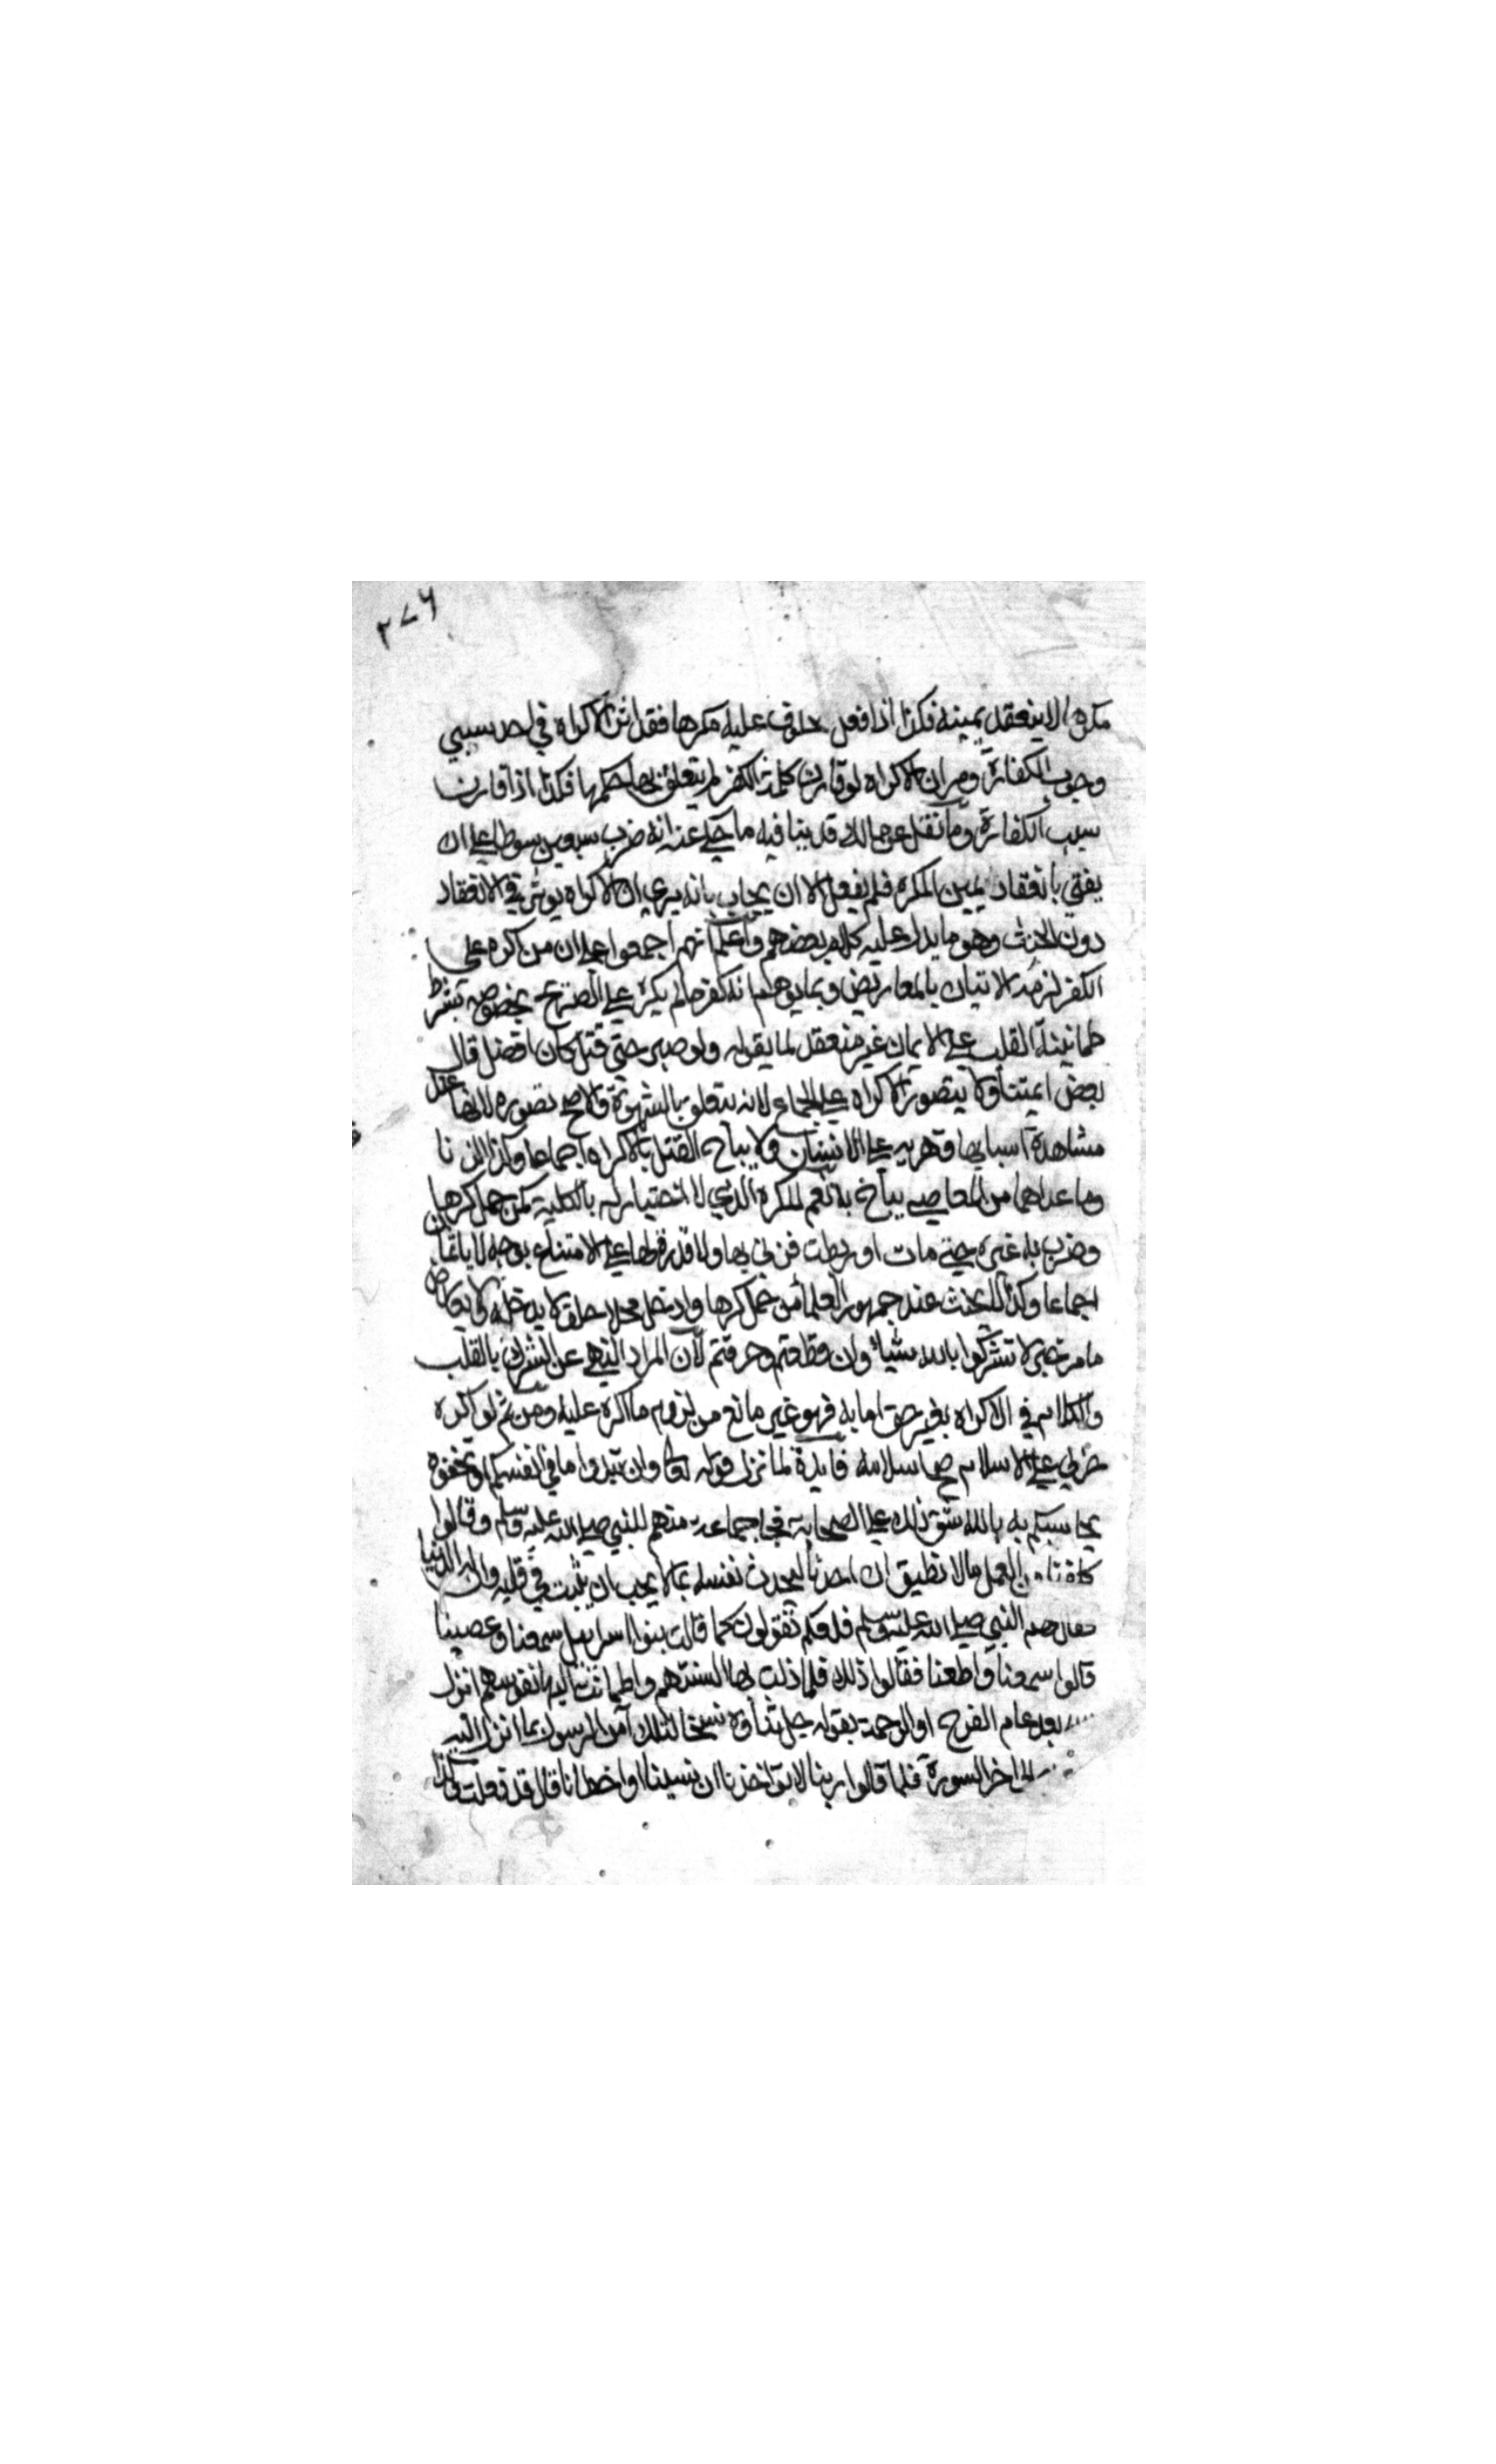 ٢٧٦
مكرها لا ينعقد يمينه فكذا اذا فعل محلوف عليه مكرها فقد اثر الاكراه في احد سببي
وجوب الكفارة ومر ان الاكراه لو قارن كلمة الكفر لم يتعلق بها حكمها فكذا اذا قارن
سبب الكفارة وما نقل عن مالك قد ينافيه ما حكي عنه انه ضرب سبعين سوطا على ان
يفتي بانعقاد يمين المكره فلم يفعل الا ان يجاب بانه يرى ان الاكراه يوثر في الانعقاد
دون الحنث وهو ما يدل عليه كلام بعضهم واعلم انهم اجمعوا على ان من اكره على
الكفر لزمه الاتيان بالمعاريض وبما يوهم انه كفر ما لم يكره على التصريح بخصوصه بشرط
طمانينة القلب على الايمان غير معتقد لما يقوله ولو صبر حتى قتل كان افضل قال
بعض ايمتنا ولا يتصور الاكراه على الجماع لانه يتعلق بالشهوة والاصح تصوره لانها عند
مشاهدة اسبابها قهرية على الانسان ولا يباح القتل بالاكراه اجماعا وكذا الزنا
وما عداهما من المعاصي يباح به نعم المكره الذي لا اختيار له بالكلية كمن حمل كرها
وضرب به غيره حتى مات او ربطت فزني بها ولا قدرة لها على الامتناع بوجه لا ياثمان
اجماعا وكذا لا يحنث عند جمهور العلما من حمل كرها وادخل محلا حلف لا يدخله ولا يعارض
ما مر خبر لا تشركوا بالله شيئا وان قطعتم وحرقتم لان المراد النهي عن الشرك بالقلب
والكلام في الاكراه بغير حق اما به فهو غير مانع من لزوم ما اكره عليه ومن ثم لو اكره
حربي على الاسلام صح اسلامه فايدة لما نزل قوله تعالى وان تبدوا ما في انفسكم او تخفوه
يحاسبكم به الله شق ذلك على الصحابة فجا جماعة منهم للنبي صلى الله عليه وسلم وقالوا
كلفنا من العمل ما لا نطيق ان احدنا ليحدث نفسه بما لا يحب ان يثبت في قلبه وان له الدنيا
فقال لهم النبي صلى الله عليه وسلم فلعلكم تقولون كما قالت بنوا اسرايل سمعنا وعصينا
قالوا سمعنا واطعنا فقالوا ذلك فلما ذلت بها السنتهم واطمانت اليها نفوسهم انزل
بعد عام الفرج او الرحمة بقوله جل ثناؤه نسخا لتلك آمن الرسول بما انزل اليه
الى اخر السورة فلما قالوا ربنا لا تواخذنا ان نسينا او اخطانا قال قد فعلت وكذا